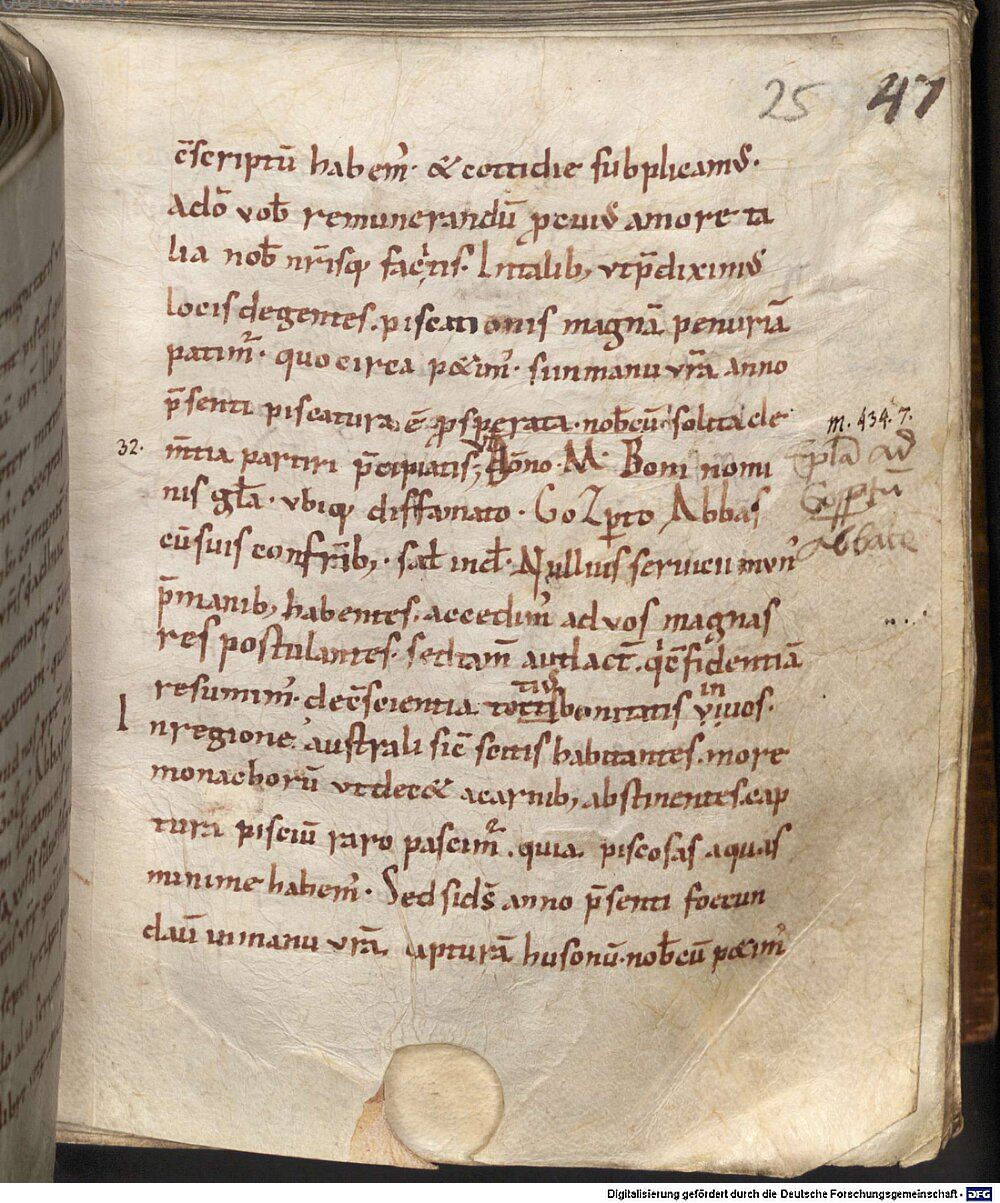 25 47
c̄scriptū habem᷑· & cottidie subplicam᷒·
Adō vob̄ remunerandū ꝑcui᷒ amore ta
lia nob̄ nr̄isq; factis· Litalib; vtp̄dixim᷒
locis degentes. piscationis magnā penuriā
patim᷑· quo circa p&im᷒· sumanu vr̄a anno
p̄senti piscatura ē ꝓsperata· nob̄cū solita cle
32. m̄tia partiri p̄cipiatis; Dōno· M· Boni nomi
nis gl̄a· vbiq; diffamato· GoZꝑto Abbas
cūsuis confr̄ib;· sal̄ ind̄· Nullius servicii mvn᷒
p̄manib; habentes· accedim᷒ ad vos magnas
res postulantes· sedtam̄ audact̄· q̇c̄fidentiā
resumim᷒· dec̄scientia totius bonitatis in vivos·
Inregione australi sic̄ scitis habitantes· more
monachorū vtdec& acarnib; abstinentes· cap
tura pisciū raro pascim᷑· quia piscosas aquas
minime habem᷒· Sed sid̄s anno p̄senti foecun
dauī inmanu vr̄a capturā husonū· nob̄cū p&im᷒
m. 434. 7.
Ep̄la ad
Gosꝑtū
Abbatē
Digitalisierung gefördert durch die Deutsche Forschungsgemeinschaft - DFG